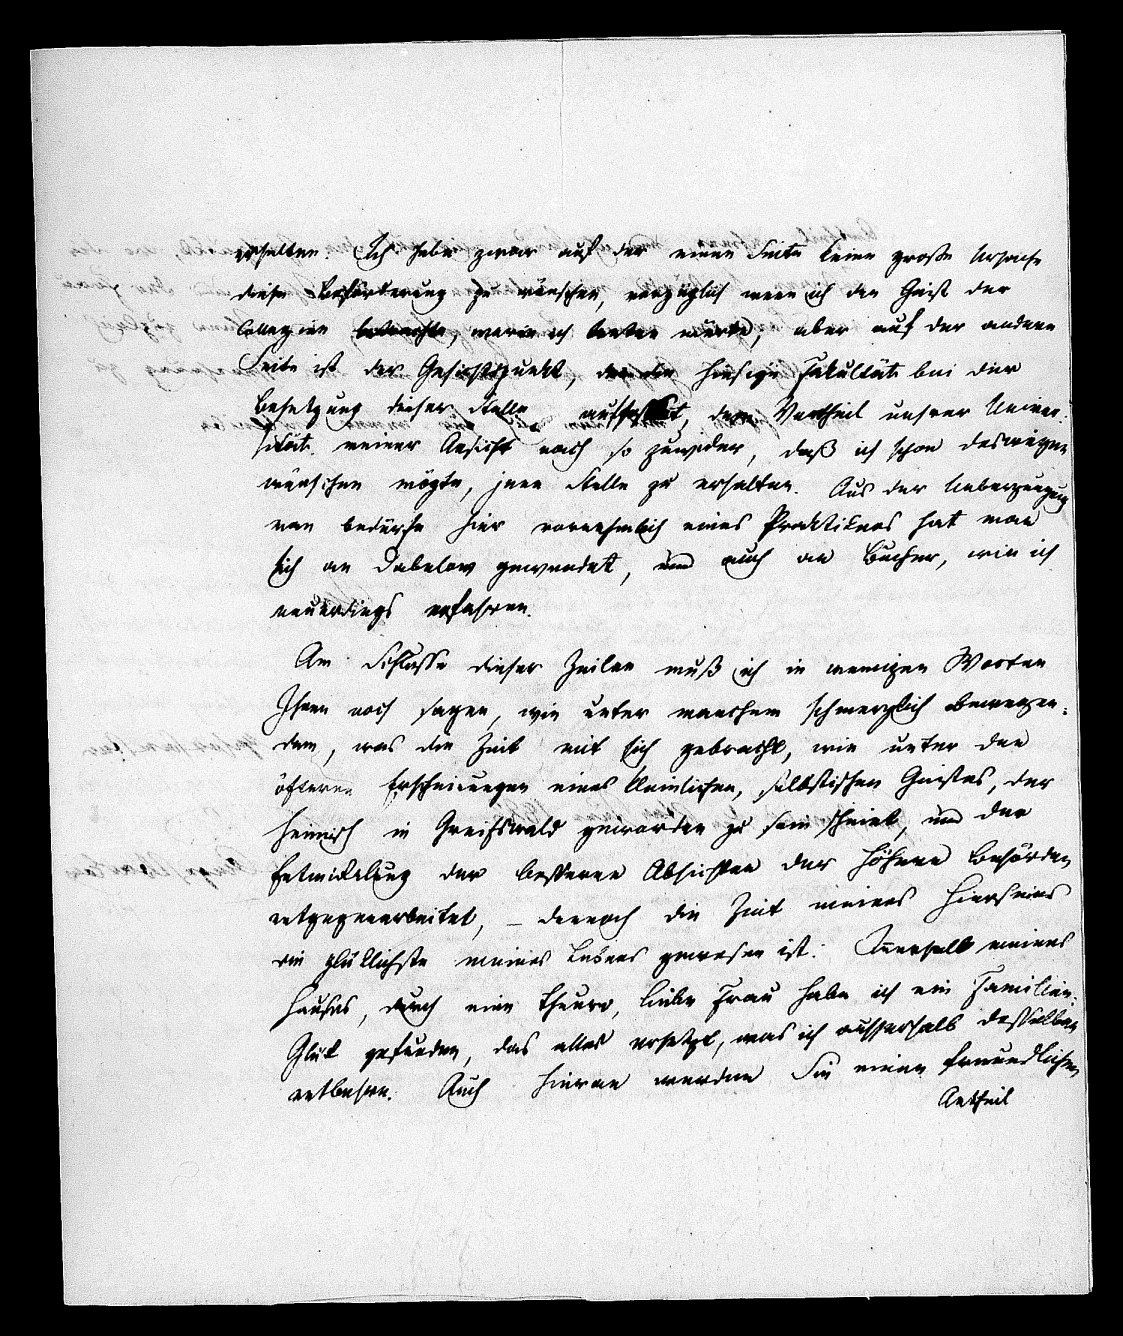 erhalten. Ich habe zwar auf der einen Seite keine große Ursache
diese Beförderung zu wünschen, vorzüglich wenn ich den Geist der
Collegien betrachte, worin ich treten würde; aber auf der andern
Seite ist der Gesichtspunkt, den die hiesige Fakultät bei der
Besetzung dieser Stelle auffaßt, dem Vortheil unsrer Univer-
sität meiner Ansicht nach so zuwider, daß ich schon deswegen
wünschen mögte, jene Stelle zu erhalten. Aus der Ueberzeugung
man bedürfe hier vornehmlich eines Praktikers hat man
sich an Dabelow gewendet, und auch an Bucher, wie ich
neuerdings erfahren.
Am Schlusse dieser Zeilen muß ich in wenigen Worten
Ihnen noch sagen, wie unter manchem schmerzlich bewegen-
dem, was die Zeit mit sich gebracht, wie unter den
öfteren Erscheinungen eines kleinlichen, selbstischen Geistes, der
heimisch in Greifswald geworden zu sein scheint, und der
Entwickelung der besseren Absichten der höhern Behörden
entgegenarbeitet, – dennoch die Zeit meines Hierseins
die glücklichste meines Lebens gewesen ist. Innerhalb meines
Hauses, durch eine theure, liebe Frau habe ich ein Familien-
Glük gefunden, das alles ersetzt, was ich ausserhalb desselben
entbehre. Auch hieran werden Sie einen freundlichen
Antheil